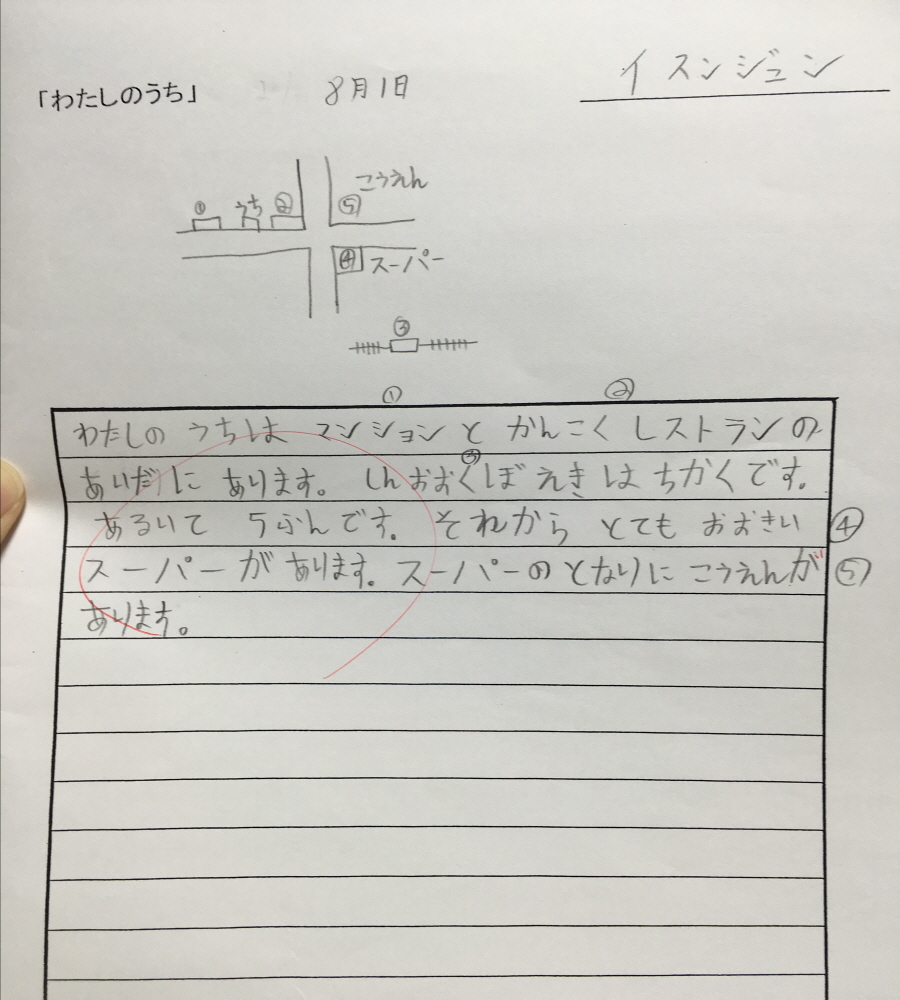 イ スンジュン
「わたしのうち」 8月1日
こうえん
① うち ② ⑤
④ スーパー
③
① ②
わたしの うちは マンションと かんこく レストランの
あいだに あります。 しんおおくぼえきは ちかくです。
③
あるいて 5ふんです。 それから とても おおきい ④
スーパーが あります。 スーパーの となりに こうえんが ⑤
あります。